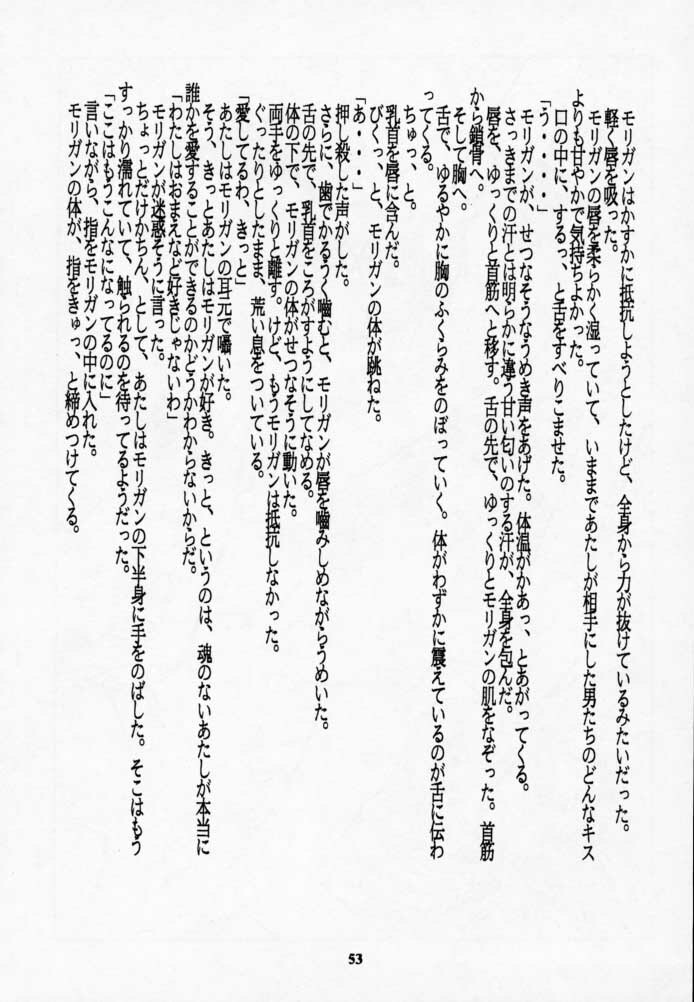 モリガンはかすかに抵抗しようとしたけど、全身から力が抜けているみたいだった。
軽く唇を吸った。
モリガンの唇を柔らかく湿っていて、いままであたしが相手にした男たちのどんなキス
よりも甘やかで気持ちよかった。
口の中に、するっ、と舌をすべりこませた。
「う・・・・」
モリガンが、せつなそうなうめき声をあげた。体温がかあっ、とあがってくる。
さっきまでの汗とは明らかに違う甘い匂いのする汗が、全身を包んだ。
唇を、ゆっくりと首筋へと移す。舌の先で、ゆっくりとモリガンの肌をなぞった。首筋
から鎖骨へ。
そして胸へ。
舌で、ゆるやかに胸のふくらみをのぼっていく。体がわずかに震えているのが舌に伝わ
ってくる。
ちゅっ、と。
乳首を唇に含んだ。
びくっ、と、モリガンの体が跳ねた。
「あ・・・・」
押し殺した声がした。
さらに、歯でかるうく噛むと、モリガンが唇を噛みしめながらうめいた。
舌の先で、乳首をころがすようにしてなめる。
体の下で、モリガンの体がせつなそうに動いた。
両手をゆっくりと離す。けど、もうモリガンは抵抗しなかった。
ぐったりとしたまま、荒い息をついている。
「愛してるわ、きっと」
あたしはモリガンの耳元で囁いた。
そう、きっとあたしはモリガンが好き。きっと、というのは、魂のないあたしが本当に
誰かを愛することができるのかどうかわからないからだ。
「わたしはおまえなど好きじゃないわ」
モリガンが迷惑そうに言った。
ちょっとだけかちん、として、あたしはモリガンの下半身に手をのばした。そこはもう
すっかり濡れていて、触られるのを待ってるようだった。
「ここはもうこんなになってるのに」
言いながら、指をモリガンの中に入れた。
モリガンの体が、指をきゅっ、と締めつけてくる。
53